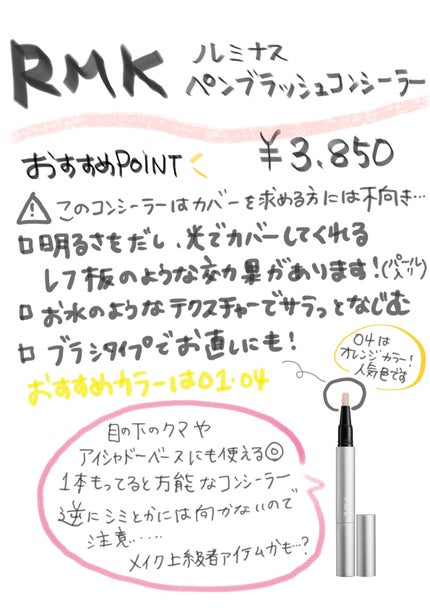 RMK ルミナス
ペンブラッシュコンシーラー
おすすめPOINT
¥3.850
⚠このコンシーラーはカバーを求める方には不向き…
□明るさをだし、光でカバーしてくれる
レフ板のような効果があります!(パール入り)
□お水のようなテクスチャーでサラっとなじむ
□ブラシタイプでお直しにも!
おすすめカラーは01・04
04は
オレンジカラー!
人気色です
目の下のクマや
アイシャドーベースにも使える◎
1本もってると万能なコンシーラー
逆にシミとかには向かないので
注意.....
メイク上級者アイテムかも…?